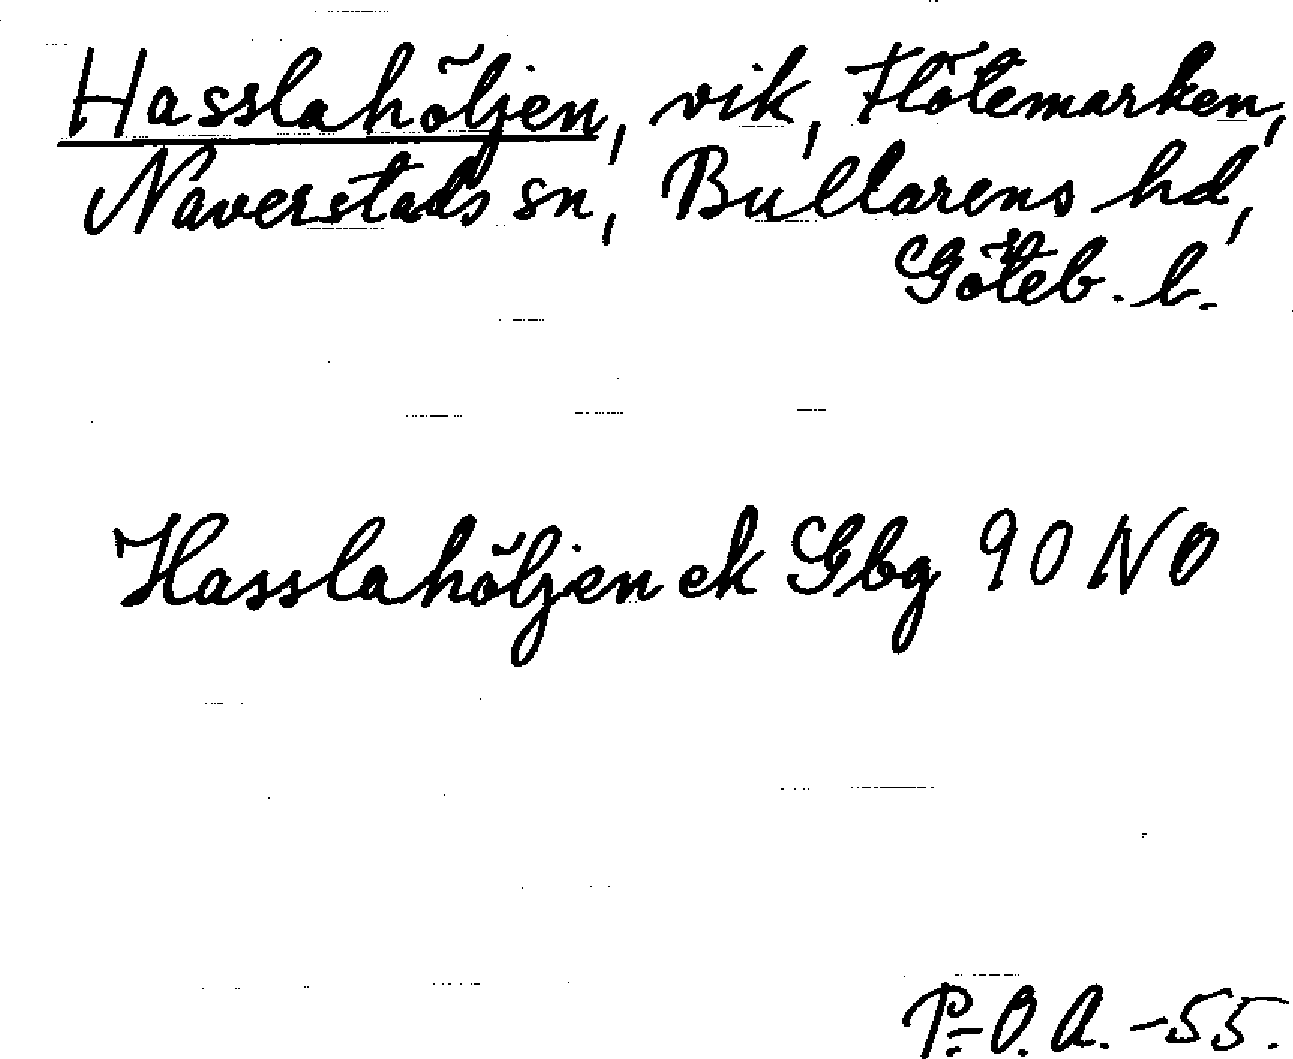 Hasslahöljen, vik, Flötemarken,
Naverstads sn, Bullarens hd,
Göteb. l.
Hasslahöljen ek Gbg 90 NO
P.-O. A. -55.